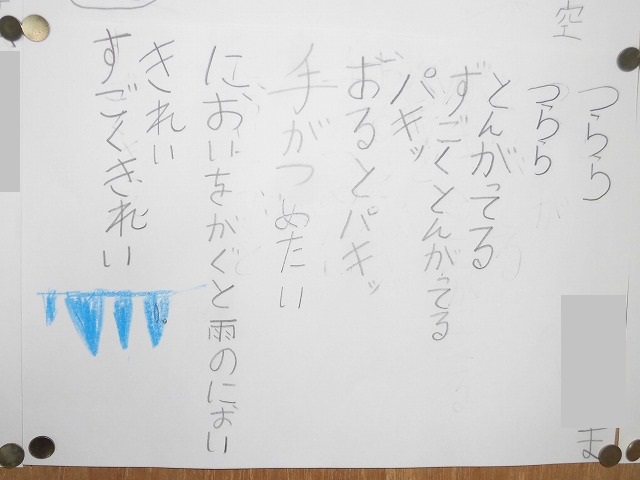 空
つらら
つらら
とんがってる
すごくとんがってる
パキッ
おるとパキッ
手がつめたい
においをかぐと雨のにおい
きれい
すごくきれい
ま